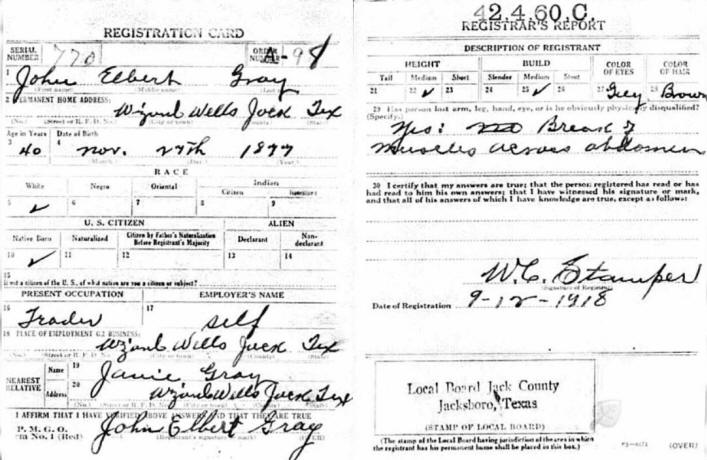 REGISTRATION CARD
SERIAL NUMBER 770 ORDER NUMBER A-98
1 John Elbert Gray
(First name) (Middle name) (Last name)
2 PERMANENT HOME ADDRESS:
Wizard Wells Jack Tex
(No.) (Street or R. F. D. No.) (City or town) (County) (State)
Age in Years Date of Birth
3 40 4 Nov. 27th 1877
(Month.) (Day.) (Year.)
RACE
White Negro Oriental Indian
Citizen Noncitizen
5 ✓ 6 7 8 9
U. S. CITIZEN ALIEN
Native Born Naturalized Citizen by Father's Naturalization Before Registrant's Majority Declarant Non-declarant
10 ✓ 11 12 13 14
15
If not a citizen of the U. S., of what nation are you a citizen or subject?
PRESENT OCCUPATION EMPLOYER'S NAME
16 Trader 17 self
18 PLACE OF EMPLOYMENT OR BUSINESS:
Wizard Wells Jack Tex
(No.) (Street or R. F. D. No.) (City or town) (County) (State)
NEAREST RELATIVE
Name 19 Janie Gray
Address 20 Wizard Wells Jack Tex
(No.) (Street or R. F. D. No.) (City or town) (County) (State)
I AFFIRM THAT I HAVE VERIFIED ABOVE ANSWERS AND THAT THEY ARE TRUE
P. M. G. O.
Form No. 1 (Red) John Elbert Gray
(Registrant's signature or mark) (OVER)
42.4.60.C
REGISTRAR'S REPORT
DESCRIPTION OF REGISTRANT
HEIGHT BUILD COLOR OF EYES COLOR OF HAIR
Tall Medium Short Slender Medium Stout
21 22 ✓ 23 24 25 ✓ 26 27 Grey 28 Brown
29 Has person lost arm, leg, hand, eye, or is he obviously physically disqualified?
(Specify.)
Yes: Break of
muscles across abdomen
30 I certify that my answers are true; that the person registered has read or has
had read to him his own answers; that I have witnessed his signature or mark,
and that all of his answers of which I have knowledge are true, except as follows:
W.C. Stamper
(Signature of Registrar)
Date of Registration 9-12-1918
Local Board Jack County
Jacksboro, Texas
(STAMP OF LOCAL BOARD)
(The stamp of the Local Board having jurisdiction of the area in which
the registrant has his permanent home shall be placed in this box.)
(OVER)